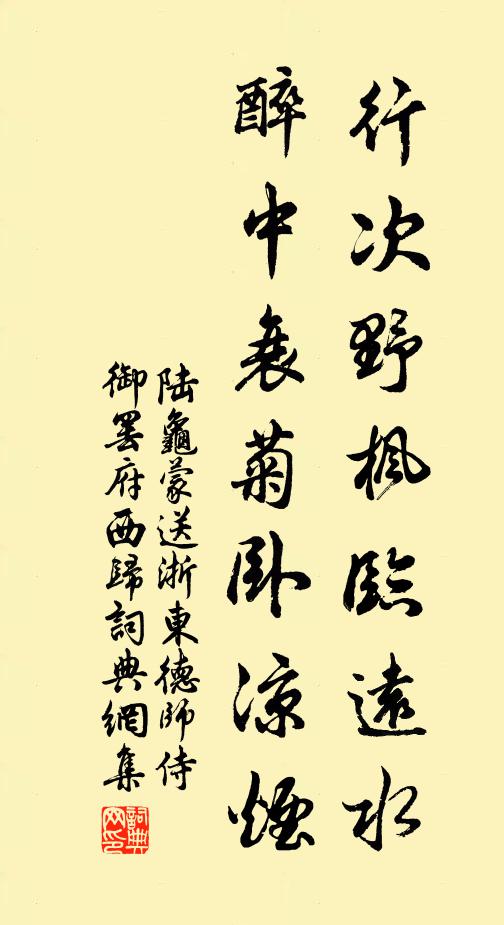 行次野楓臨遠水
醉中衰菊臥涼煙
陆龜蒙送浙東德師侍
御罢府西歸詞典網集
詞典
网印